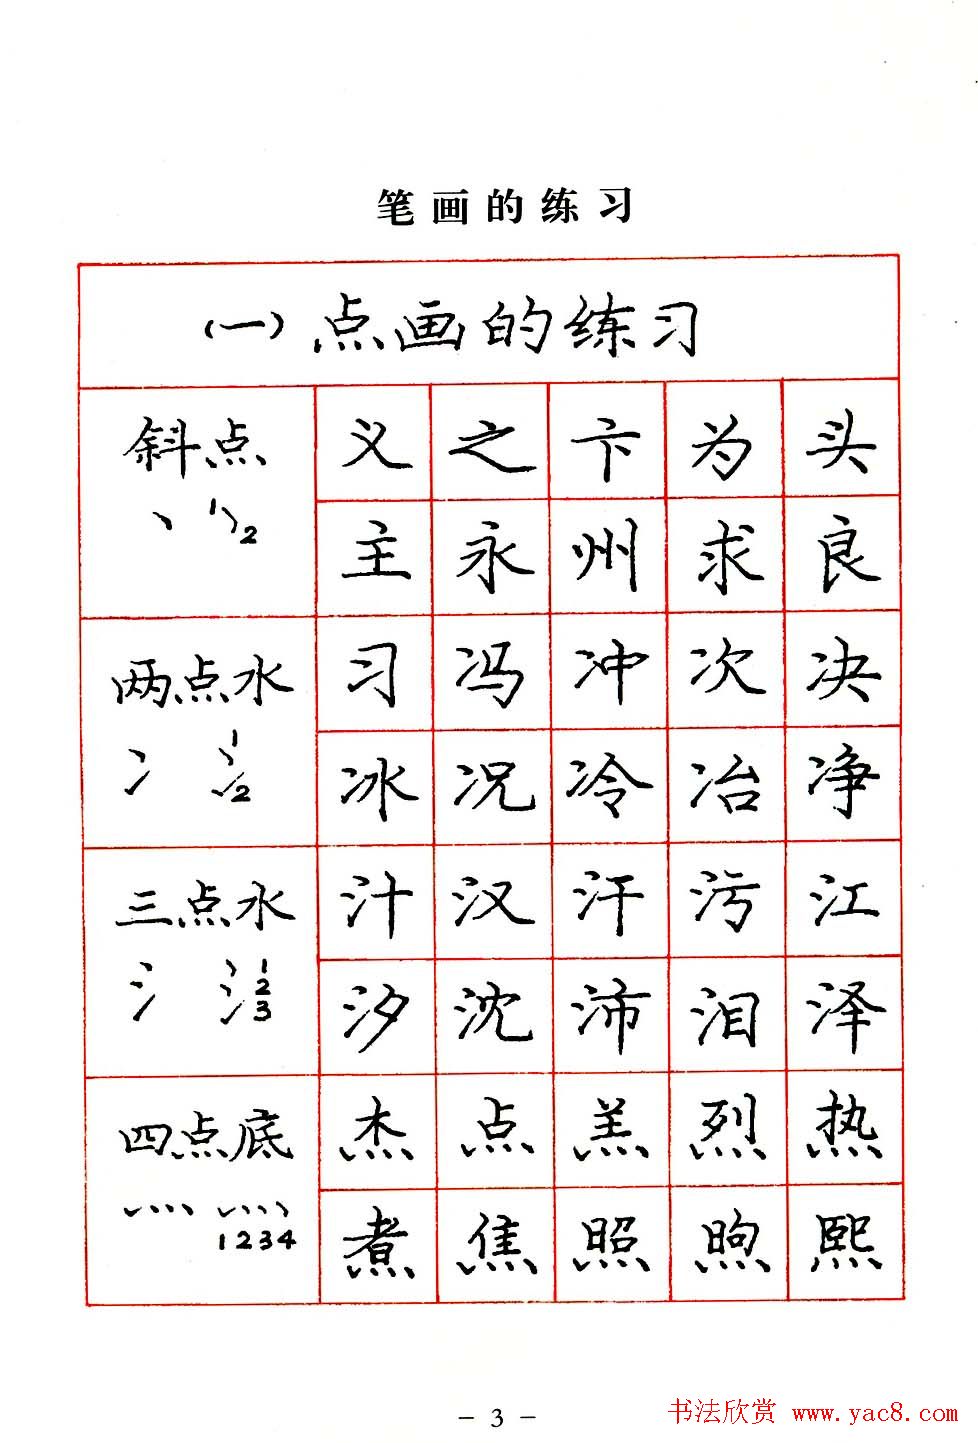 笔画的练习
(一)点画的练习
斜点 义 之 卞 为 头
丶 1 2
主 永 州 求 良
两点水 习 冯 冲 次 决
冫 1 2
冰 况 冷 冶 净
三点水 汁 汉 汗 污 江
氵 1 2 3
汐 沈 沛 泪 泽
四点底 杰 点 羔 烈 热
灬 1234
煮 焦 照 煦 熙
- 3 -
书法欣赏 www.yac8.com